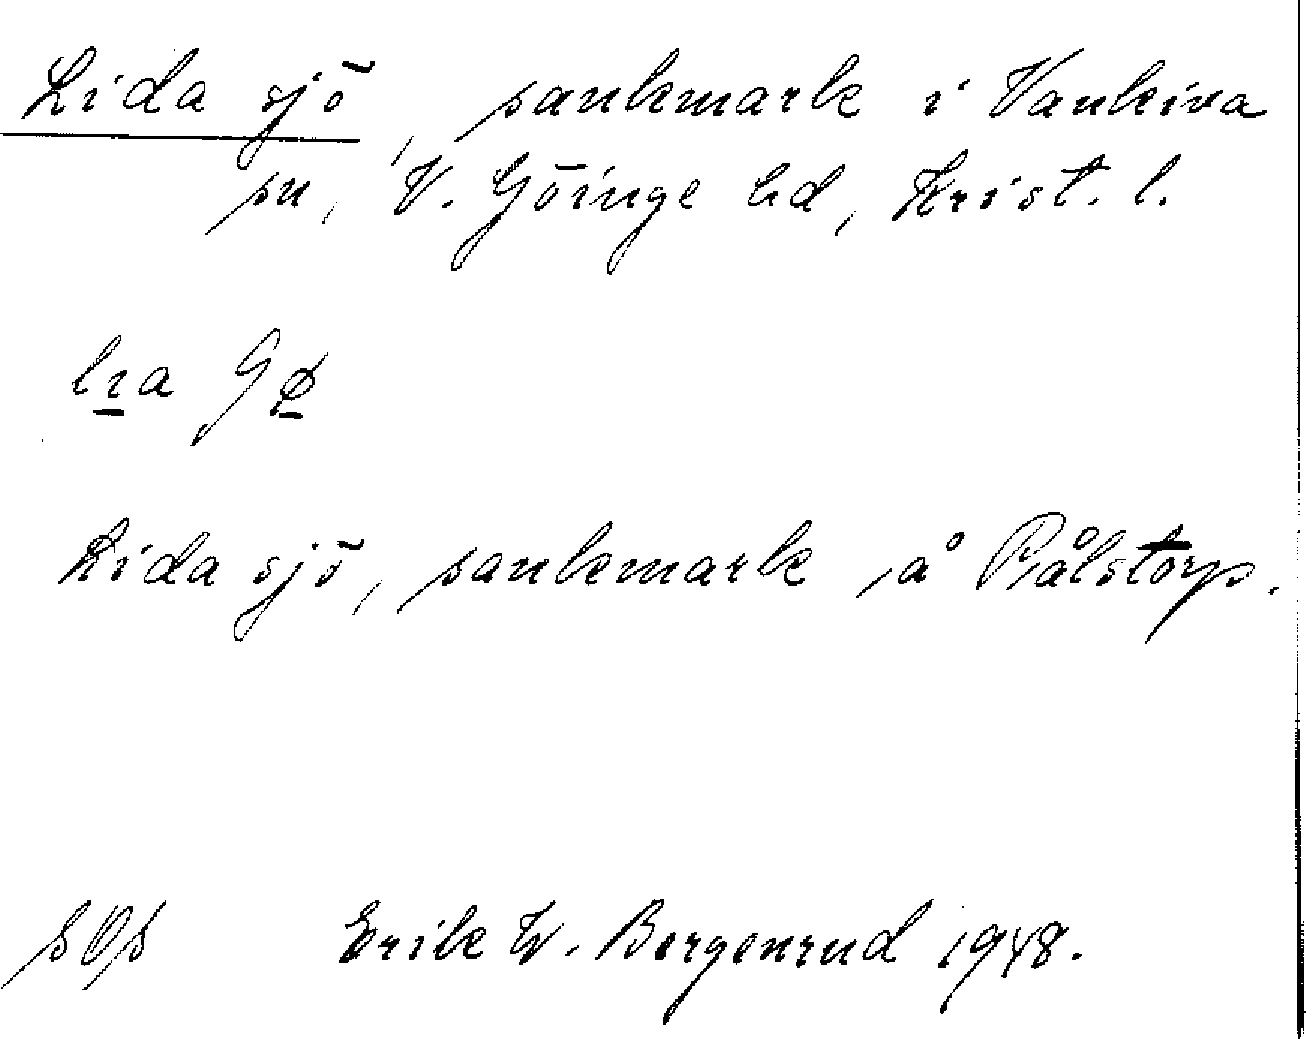 Lida sjö, sankmark i Vankiva
sn, V. Göinge hd, Krist. l.
Lida sjö, sankmark å Pålstorp.
Erik W. Bergenrud 1948.